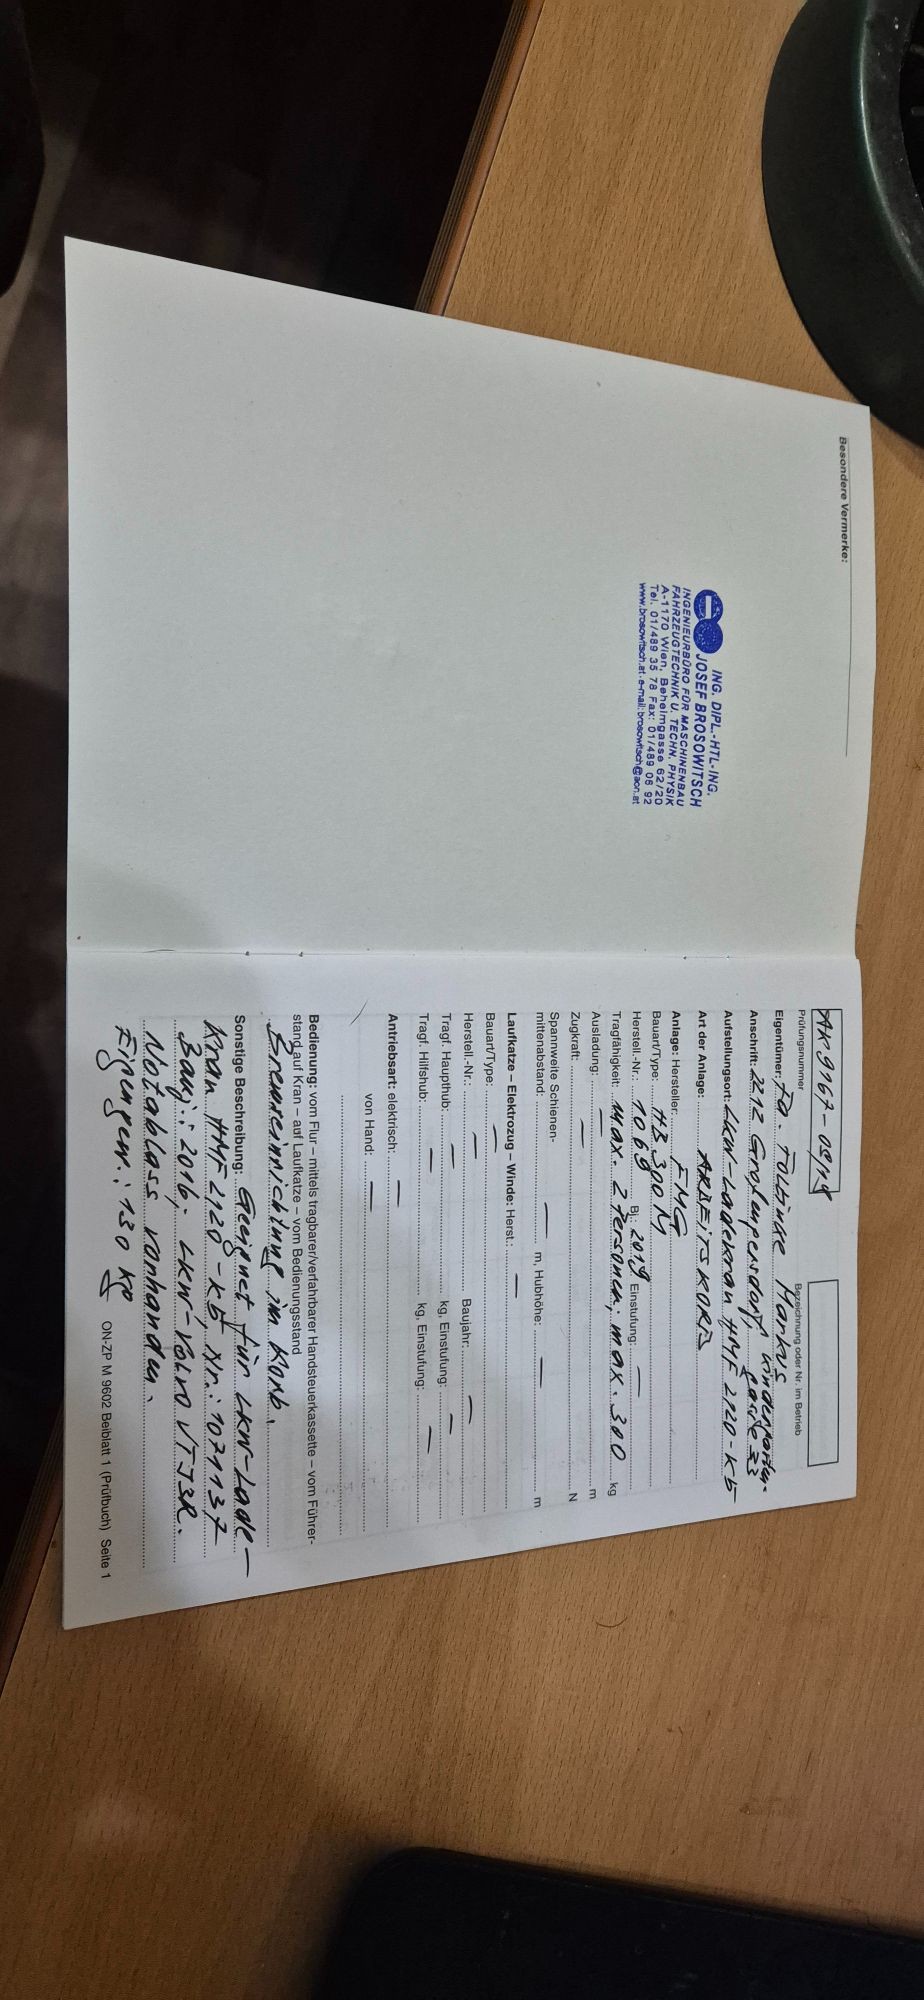 Besondere Vermerke:
ING. DIPL.-HTL-ING.
JOSEF BROSOWITSCH
INGENIEURBÜRO FÜR MASCHINENBAU
FAHRZEUGTECHNIK U. TECHN. PHYSIK
A-1170 Wien, Beheimgasse 62/20
Tel. 01/489 35 78 Fax: 01/489 06 92
www.brosowitsch.at, e-mail: brosowitsch@aon.at
AK-9167-09/19
Prüfungsnummer
Bezeichnung oder Nr. im Betrieb
Eigentümer: Fa. Markus
Anschrift: 2212 Großengersdorf, Kindergarten-
gasse 33
Aufstellungsort: LKW-Ladekran HMF 2120-K5
Art der Anlage: ARBEITSKORB
Anlage: Hersteller: FMG
Bauart/Type: HB 300 M
Herstell.-Nr.: 1069 Bj: 2019 Einstufung: —
Tragfähigkeit: max. 2 Personen; max. 300 kg
Ausladung: — m
Zugkraft: — N
Spannweite Schienen-
mittenabstand: — m, Hubhöhe: — m
Laufkatze – Elektrozug – Winde: Herst.: —
Bauart/Type: —
Herstell.-Nr.: — Baujahr: —
Tragf. Haupthub: — kg, Einstufung: —
Tragf. Hilfshub: — kg, Einstufung: —
Antriebsart: elektrisch: —
von Hand: —
Bedienung: vom Flur – mittels tragbarer/verfahrbarer Handsteuerkassette – vom Führer-
stand auf Kran – auf Laufkatze – vom Bedienungsstand
Bremseinrichtung im Korb.
Sonstige Beschreibung: Geeignet für LKW-Lade-
kran HMF 2120-K5, Nr.: 1071137
Bauj.: 2016. LKW-Volvo VTJ3R.
Notablass vorhanden.
Eigengew.: 130 kg
ON-ZP M 9602 Beiblatt 1 (Prüfbuch) Seite 1